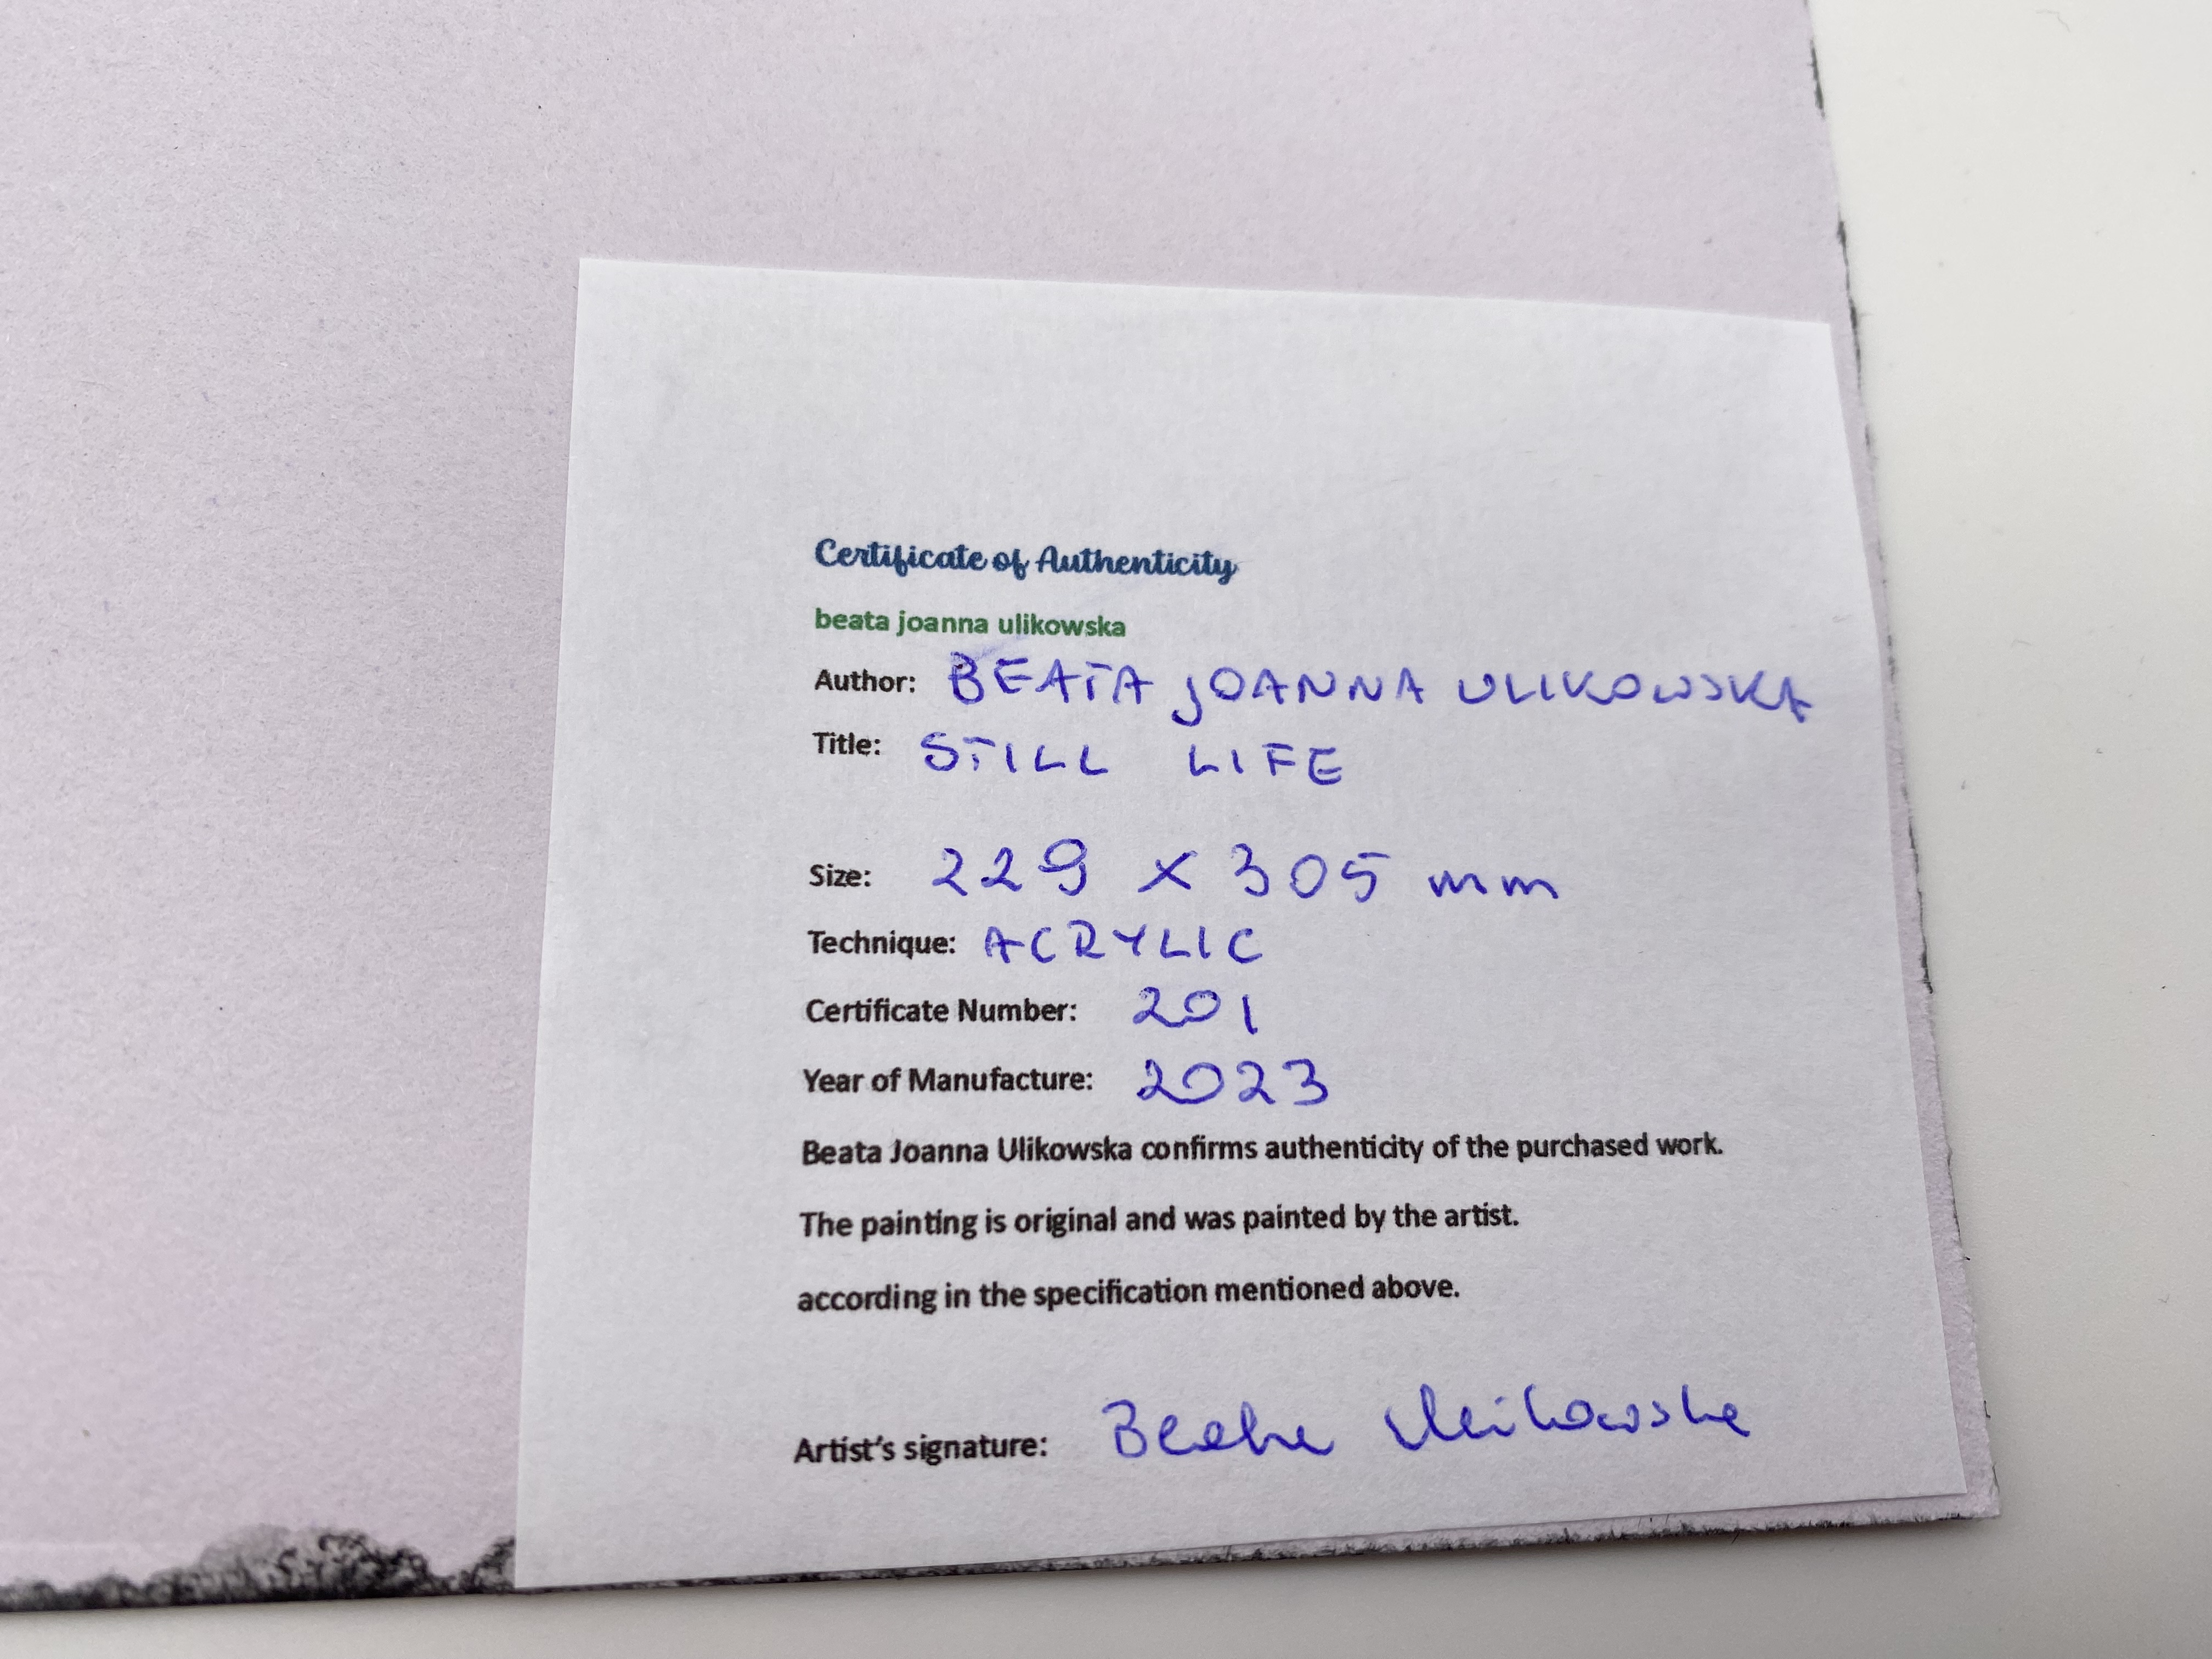 Certificate of Authenticity
beata joanna ulikowska
Author: BEATA JOANNA ULIKOWSKA
Title: STILL LIFE
Size: 229 x 305 mm
Technique: ACRYLIC
Certificate Number: 201
Year of Manufacture: 2023
Beata Joanna Ulikowska confirms authenticity of the purchased work.
The painting is original and was painted by the artist.
according in the specification mentioned above.
Artist's signature: Beata Ulikowska